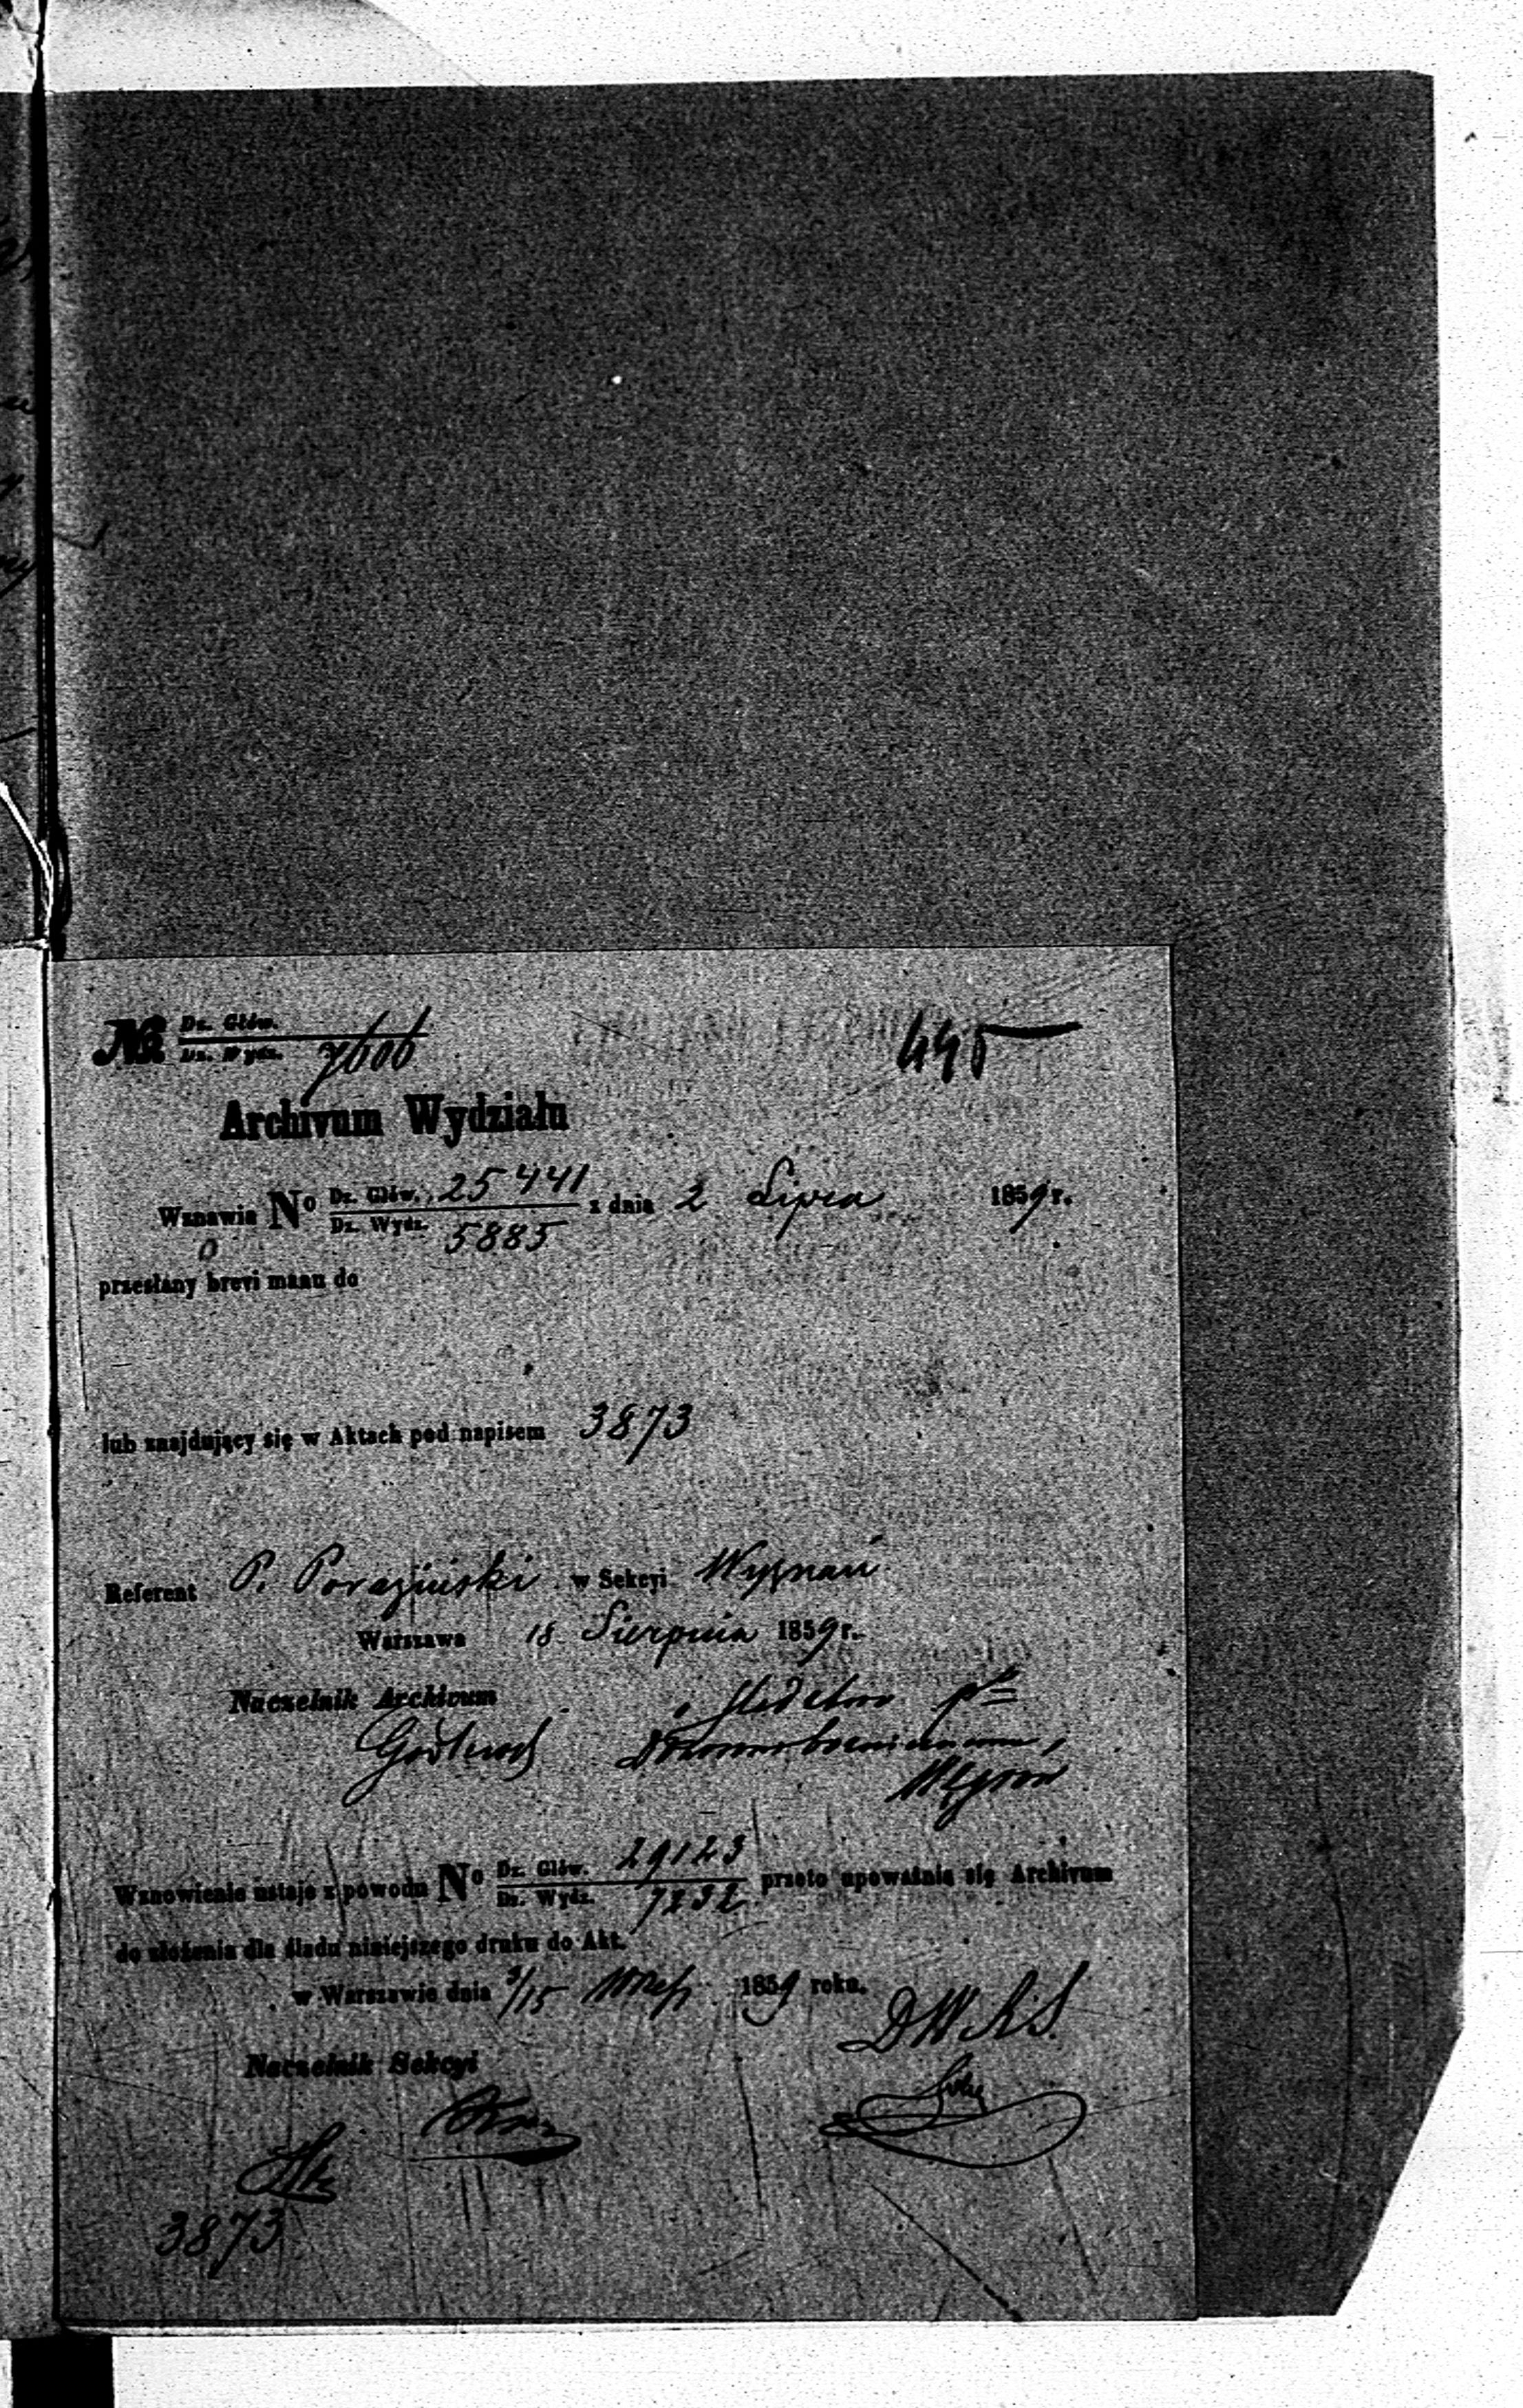 № Dz. Głów.
Dz. Wydz. 7606
445
Archivum Wydziału
Wznawia No Dz. Głów. 25441 z dnia 2 Lipca 1859 r.
Dz. Wydz. 5885
przesłany brevi manu do
lub znajdujący się w Aktach pod napisem 3873
Referent P. Poraziński w Sekcyi Wyznań
Warszawa 18 Sierpnia 1859 r.
Naczelnik Archivum
Wznowienie ustaje z powodu No Dz. Głów. 29123 przeto upoważnia się Archivum
Dz. Wydz. 7232
do złożenia dla śladu niniejszego druku do Akt.
w Warszawie dnia 3/15 1859 roku.
Naczelnik Sekcyi
3873